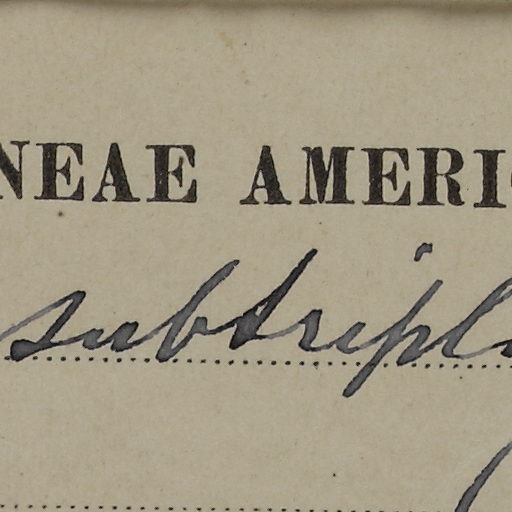 NEAE AMERI
subtripl